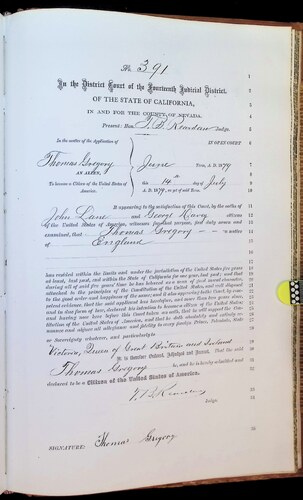 No. 391
In the District Court of the Fourteenth Judicial District,
OF THE STATE OF CALIFORNIA,
IN AND FOR THE COUNTY OF NEVADA.
Present: Hon. T. B. Reardan Judge.
In the matter of the Application of
IN OPEN COURT
Thomas Gregory
June Term, A. D. 1879
AN ALIEN,
To become a Citizen of the United States of America.
this 14th day July
A. D. 1879, as of said Term.
It appearing to the satisfaction of this Court, by the oaths of
John Lane and George Harry citizens
of the United States of America, witnesses for that purpose, first duly sworn and
examined, that Thomas Gregory a native
of England
has resided within the limits and under the jurisdiction of the United States five years
at least, last past, and within the State of California for one year, last past; and that
during all of said five years' time he has behaved as a man of good moral character,
attached to the principles of the Constitution of the United States, and well disposed
to the good order and happiness of the same; and it also appearing to the Court, by com-
petent evidence, that the said applicant has heretofore, and more than two years since,
and in due form of law, declared his intention to become a citizen of the United States;
and having now here before this Court taken an oath, that he will support the Con-
stitution of the United States of America, and that he doth absolutely and entirely re-
nounce and abjure all allegiance and fidelity to every foreign Prince, Potentate, State
or Sovereignty whatever, and particularly to
Victoria, Queen of Great Britain and Ireland
It is therefore Ordered, Adjudged and Decreed, That the said
Thomas Gregory be, and he is hereby admitted and
declared to be a Citizen of the United States of America.
Judge.
SIGNATURE: Thomas Gregory